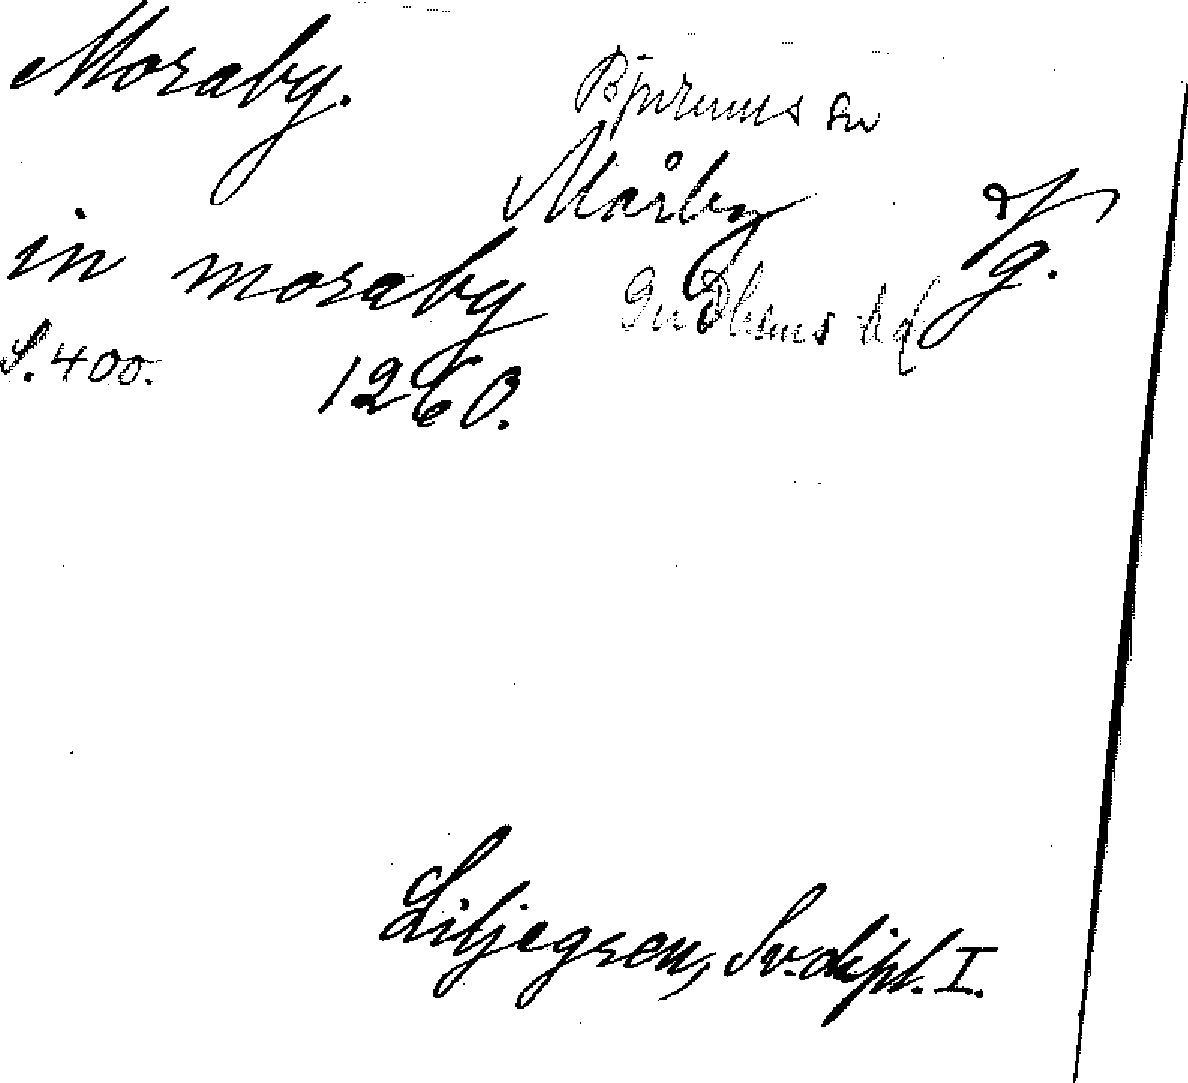 Moraby.
Bjurums sn
Mårby
Vg.
in moraby
Gudhems hd
S. 400.
1260.
Liljegren, Sv. dipl. I.